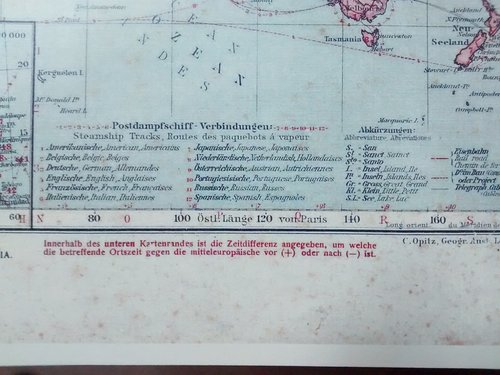 O Z E A N
D E S
Kerguelen I.
Mc Donald Iⁿ
Heard I.
Tasmania
Launceston
Hobart
Neu-
Seeland
Macquarie I.
Auckland Iⁿ
Campbell Iⁿ
20
15
Postdampfschiff-Verbindungen:
Steamship Tracks, Routes des paquebots à vapeur
1 Amerikanische, American, Américains
2 Belgische, Belgic, Belges
3 Deutsche, German, Allemandes
4 Englische, English, Anglaises
5 Französische, French, Françaises
6 Italienische, Italian, Italiennes
7 Japanische, Japanese, Japonaises
8 Niederländische, Netherlandish, Hollandaises
9 Österreichische, Austrian, Autrichiennes
10 Portugiesische, Portuguese, Portugaises
11 Russische, Russian, Russes
12 Spanische, Spanish, Espagnoles
Abkürzungen:
Abbreviature, Abréviations
S. = San
Sᵗ = Sanct, Saint
Sᵗᵒ = Santo
I. = Insel, Island, Ile
Iⁿ = Inseln, Islands, Iles
Gr. = Gross, Great, Grand
Kl. = Klein, Little, Petit
S.L. = See, Lake, Lac
Eisenbahn
Rail road
Chemin de
oder Project
60 H N 80 O 100 Östl. Länge 120 von Paris 140 R 160 S
Long. orient. du Méridien de
Innerhalb des unteren Kartenrandes ist die Zeitdifferenz angegeben, um welche
die betreffende Ortszeit gegen die mitteleuropäische vor (+) oder nach (—) ist.
C. Opitz, Geogr. Anst. L
IA.